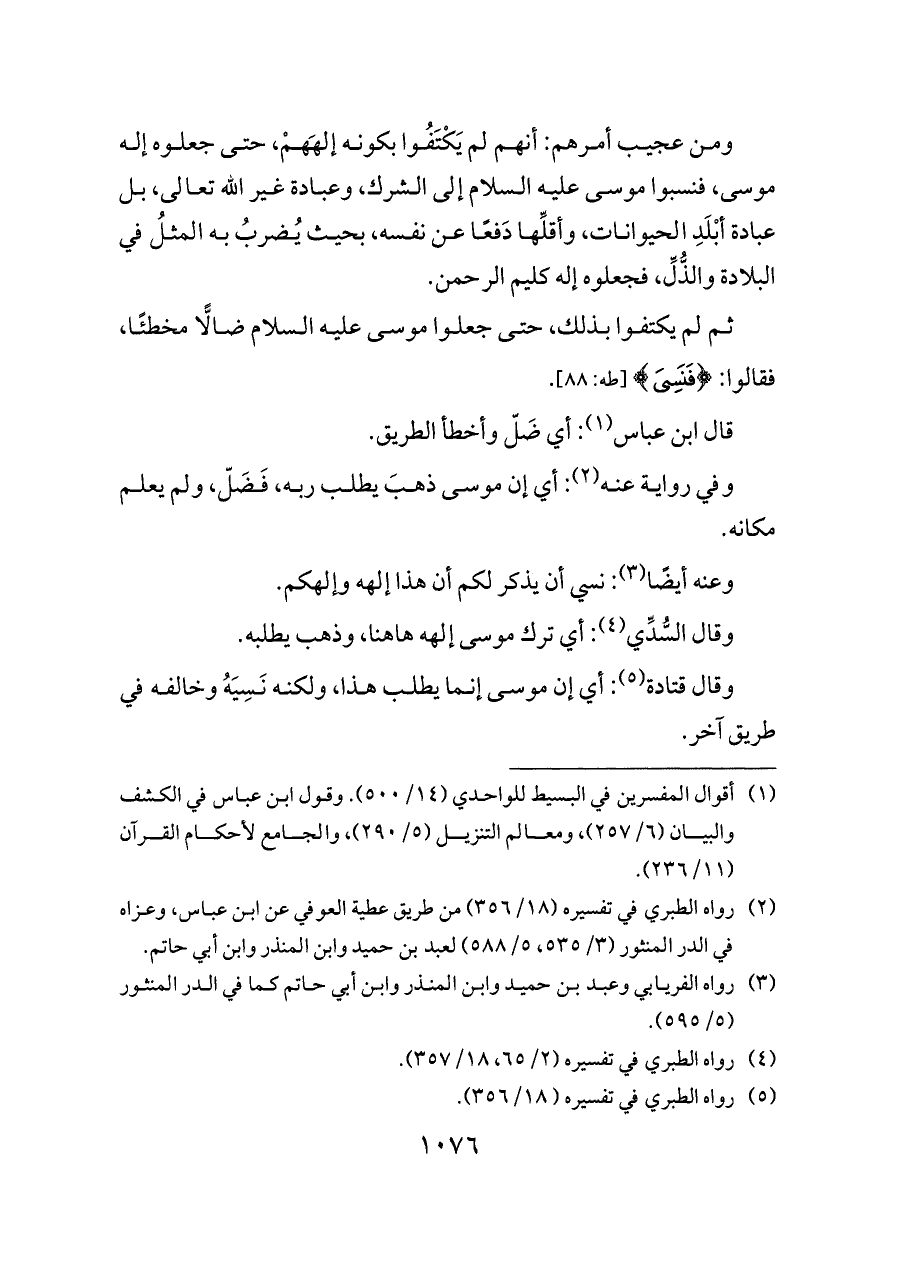 ومن عجيب أمرهم: أنهم لم يَكْتَفُوا بكونه إلهَهَمْ، حتى جعلوه إله
موسى، فنسبوا موسى عليه السلام إلى الشرك، وعبادة غير الله تعالى، بل
عبادة أبْلَدِ الحيوانات، وأقلِّها دَفعًا عن نفسه، بحيث يُضربُ به المثلُ في
البلادة والذُّلِّ، فجعلوه إله كليم الرحمن.
ثم لم يكتفوا بذلك، حتى جعلوا موسى عليه السلام ضالًّا مخطئًا،
فقالوا: ﴿فَنَسِىَ﴾ [طه: ٨٨].
قال ابن عباس(١): أي ضَلّ وأخطأ الطريق.
وفي رواية عنه(٢): أي إن موسى ذهبَ يطلب ربه، فَضَلّ، ولم يعلم
مكانه.
وعنه أيضًا(٣): نسي أن يذكر لكم أن هذا إلهه وإلهكم.
وقال السُّدِّي(٤): أي ترك موسى إلهه هاهنا، وذهب يطلبه.
وقال قتادة(٥): أي إن موسى إنما يطلب هذا، ولكنه نَسِيَهُ وخالفه في
طريق آخر.
(١) أقوال المفسرين في البسيط للواحدي (١٤/ ٥٠٠). وقول ابن عباس في الكشف
والبيان (٦/ ٢٥٧)، ومعالم التنزيل (٥/ ٢٩٠)، والجامع لأحكام القرآن
(١١/ ٢٣٦).
(٢) رواه الطبري في تفسيره (١٨/ ٣٥٦) من طريق عطية العوفي عن ابن عباس، وعزاه
في الدر المنثور (٣/ ٥٣٥، ٥/ ٥٨٨) لعبد بن حميد وابن المنذر وابن أبي حاتم.
(٣) رواه الفريابي وعبد بن حميد وابن المنذر وابن أبي حاتم كما في الدر المنثور
(٥/ ٥٩٥).
(٤) رواه الطبري في تفسيره (٢/ ٦٥، ١٨/ ٣٥٧).
(٥) رواه الطبري في تفسيره (١٨/ ٣٥٦).
١٠٧٦